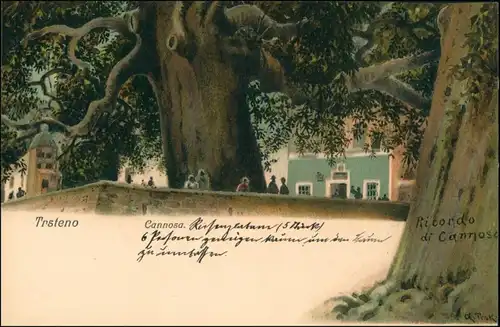 Trsteno
Cannosa. Riesenplatane (5 Stück)
6 Personen genügen kaum, um den Baum
zu umfassen.
Ricordo
di Cannosa